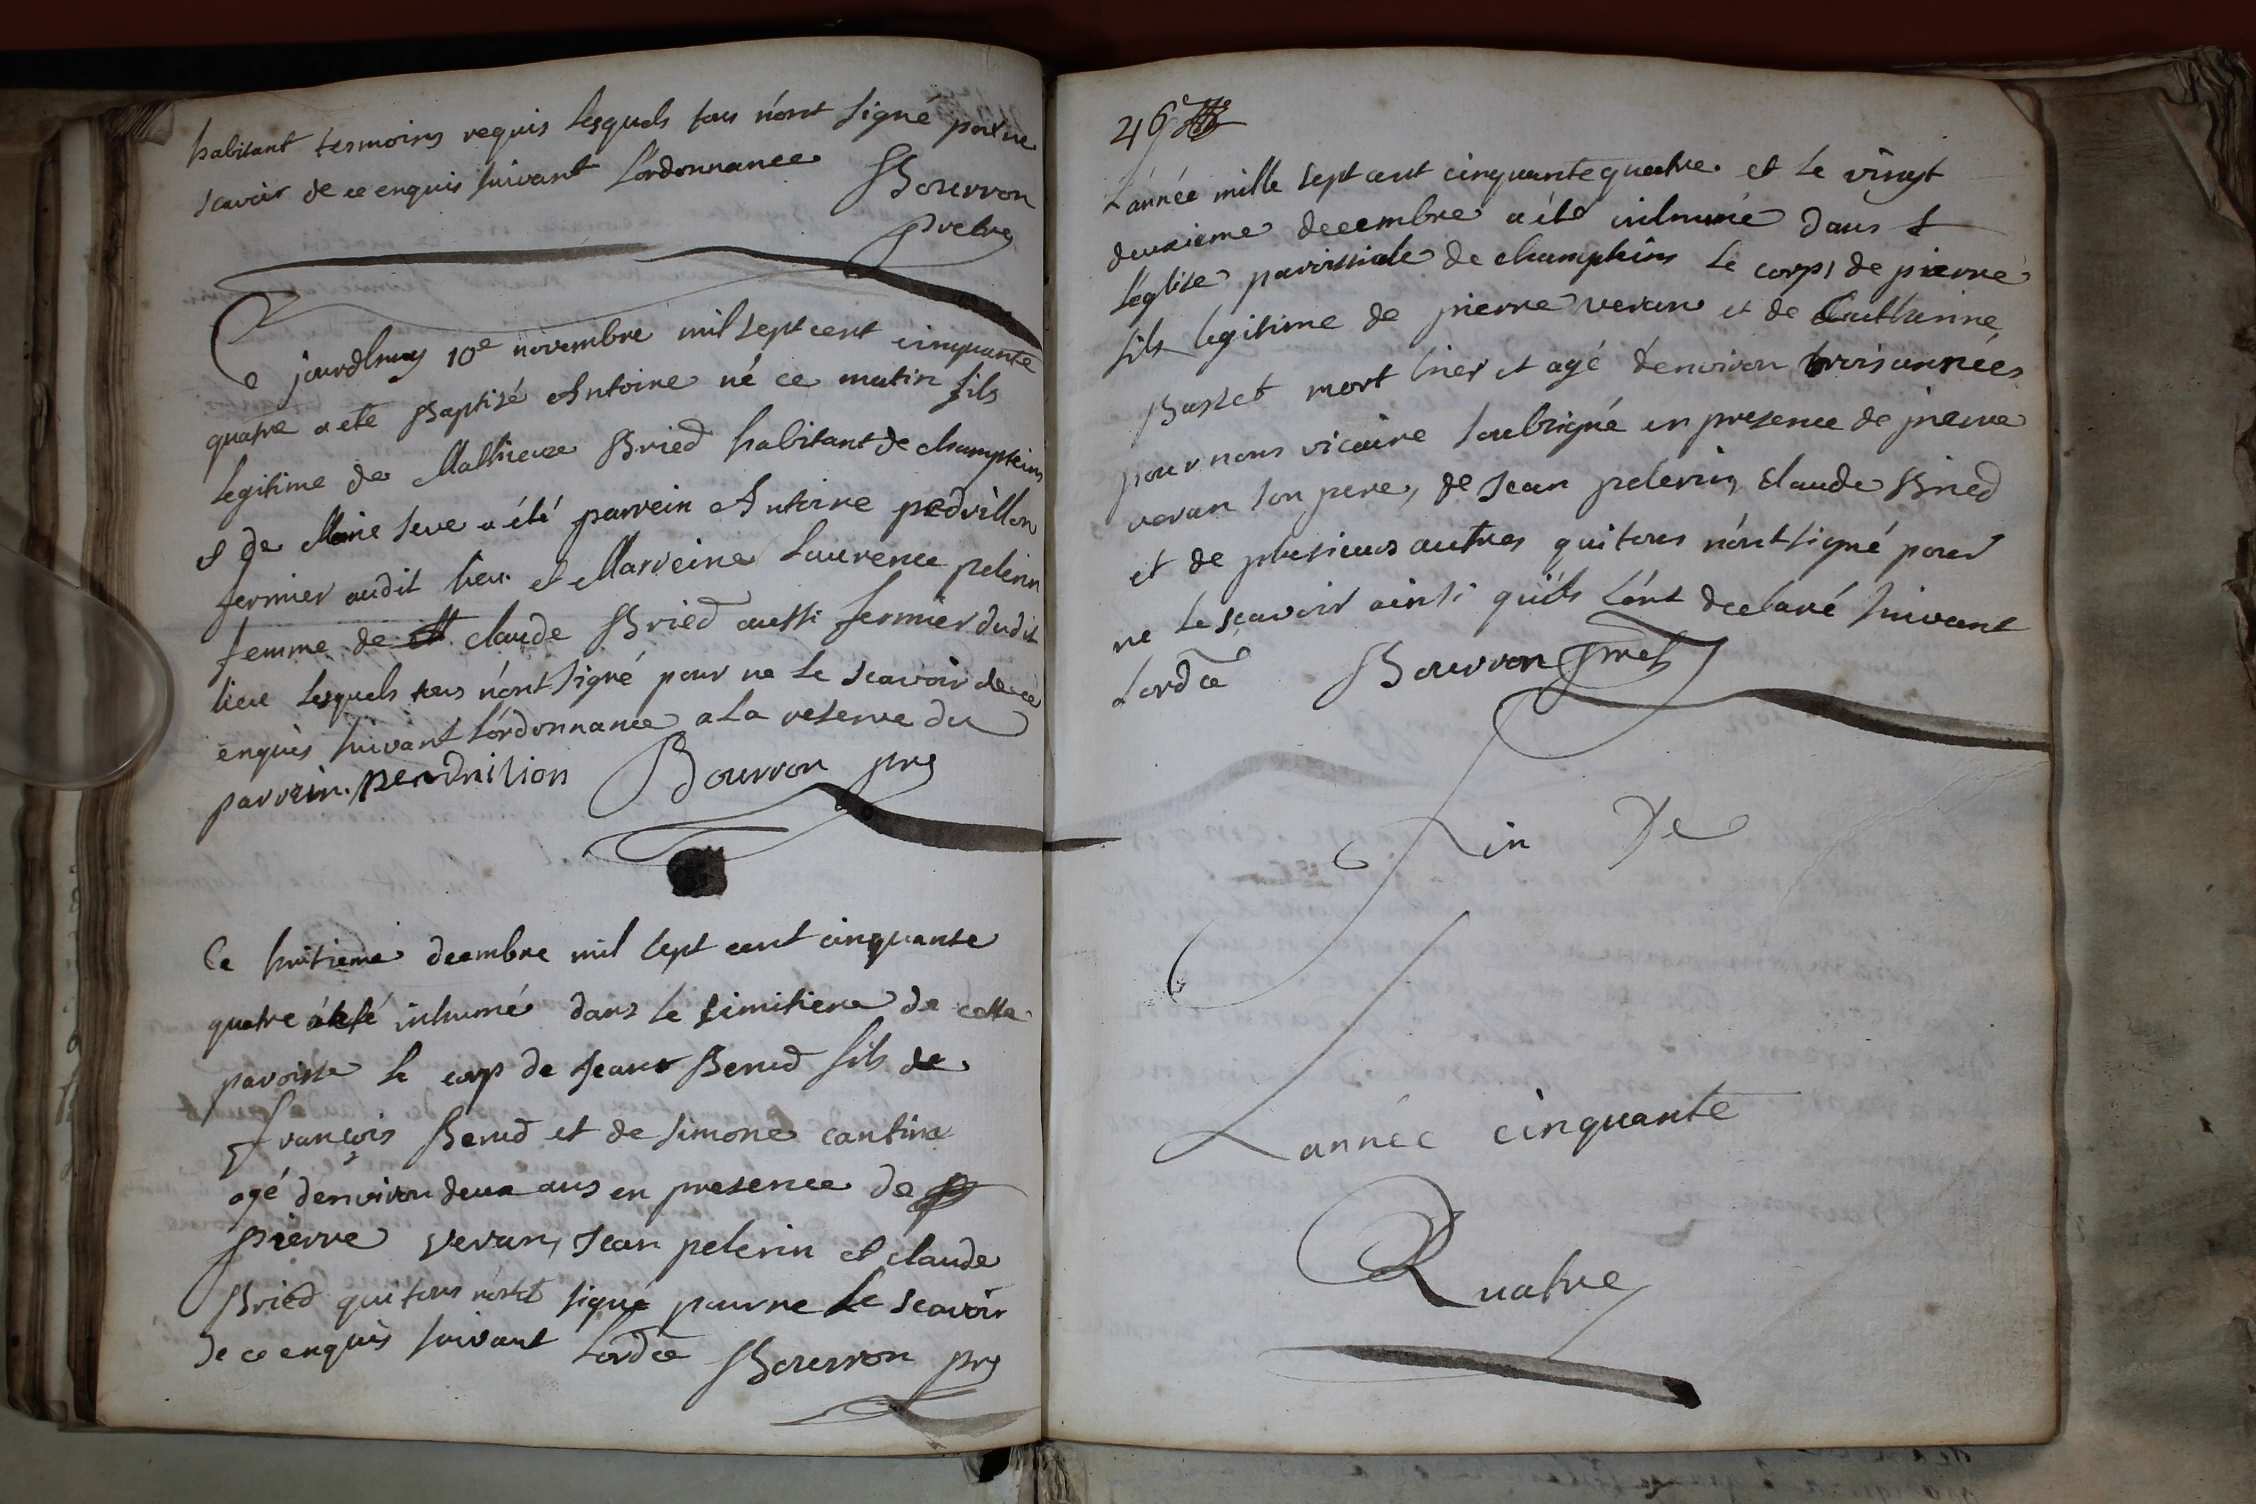 habitant tesmoins requis lesquels tous n'ont signé pour ne
scavoir de ce enquis suivant l'ordonnance Bourron
prebre
Ce jourdhuy 10e novembre mil sept cent cinquante
quatre a ete Baptisé Antoine né ce matin fils
legitime de Mathieux Bried habitant de champteins
et de Marie seve a été parrein Antoine pedrillon
fermier audit lieu et Marreine Laurence pelerin
femme de claude Bried aussi fermier dudit
lieu lesquels tous n'ont signé pour ne le scavoir de ce
enquis suivant l'ordonnance a la reserve du
parrein. pendrilion Bourron pre
Ce huitieme decembre mil sept cent cinquante
quatre a été inhumé dans le simitiere de cette
paroisse le corp de Jean Berud fils de
françois Berud et de simone cantina
agé denviron deux ans en presence de
pierre veran, Jean pelerin et claude
Bried qui tous n'ont signé pour ne le scavoir
de ce enquis suivant l'ordce Bourron pre
46e
L'année mille sept cent cinquante quatre et le vingt
deuxieme decembre a été inhumé dans
l'eglise paroissiale de champteins le corps de pierre
fils legitime de pierre veran et de Catherine
Basset mort hier et agé d'environ trois années
pour nous vicaire soubsigné en presence de pierre
veran son pere, de Jean pelerin, claude Bried
et de plusieurs autres qui tous n'ont signé pour
ne le scavoir ainsi qu'ils l'ont declaré suivant
L'ordce Bourron pretre
Fin De
L'année cinquante
Quatre